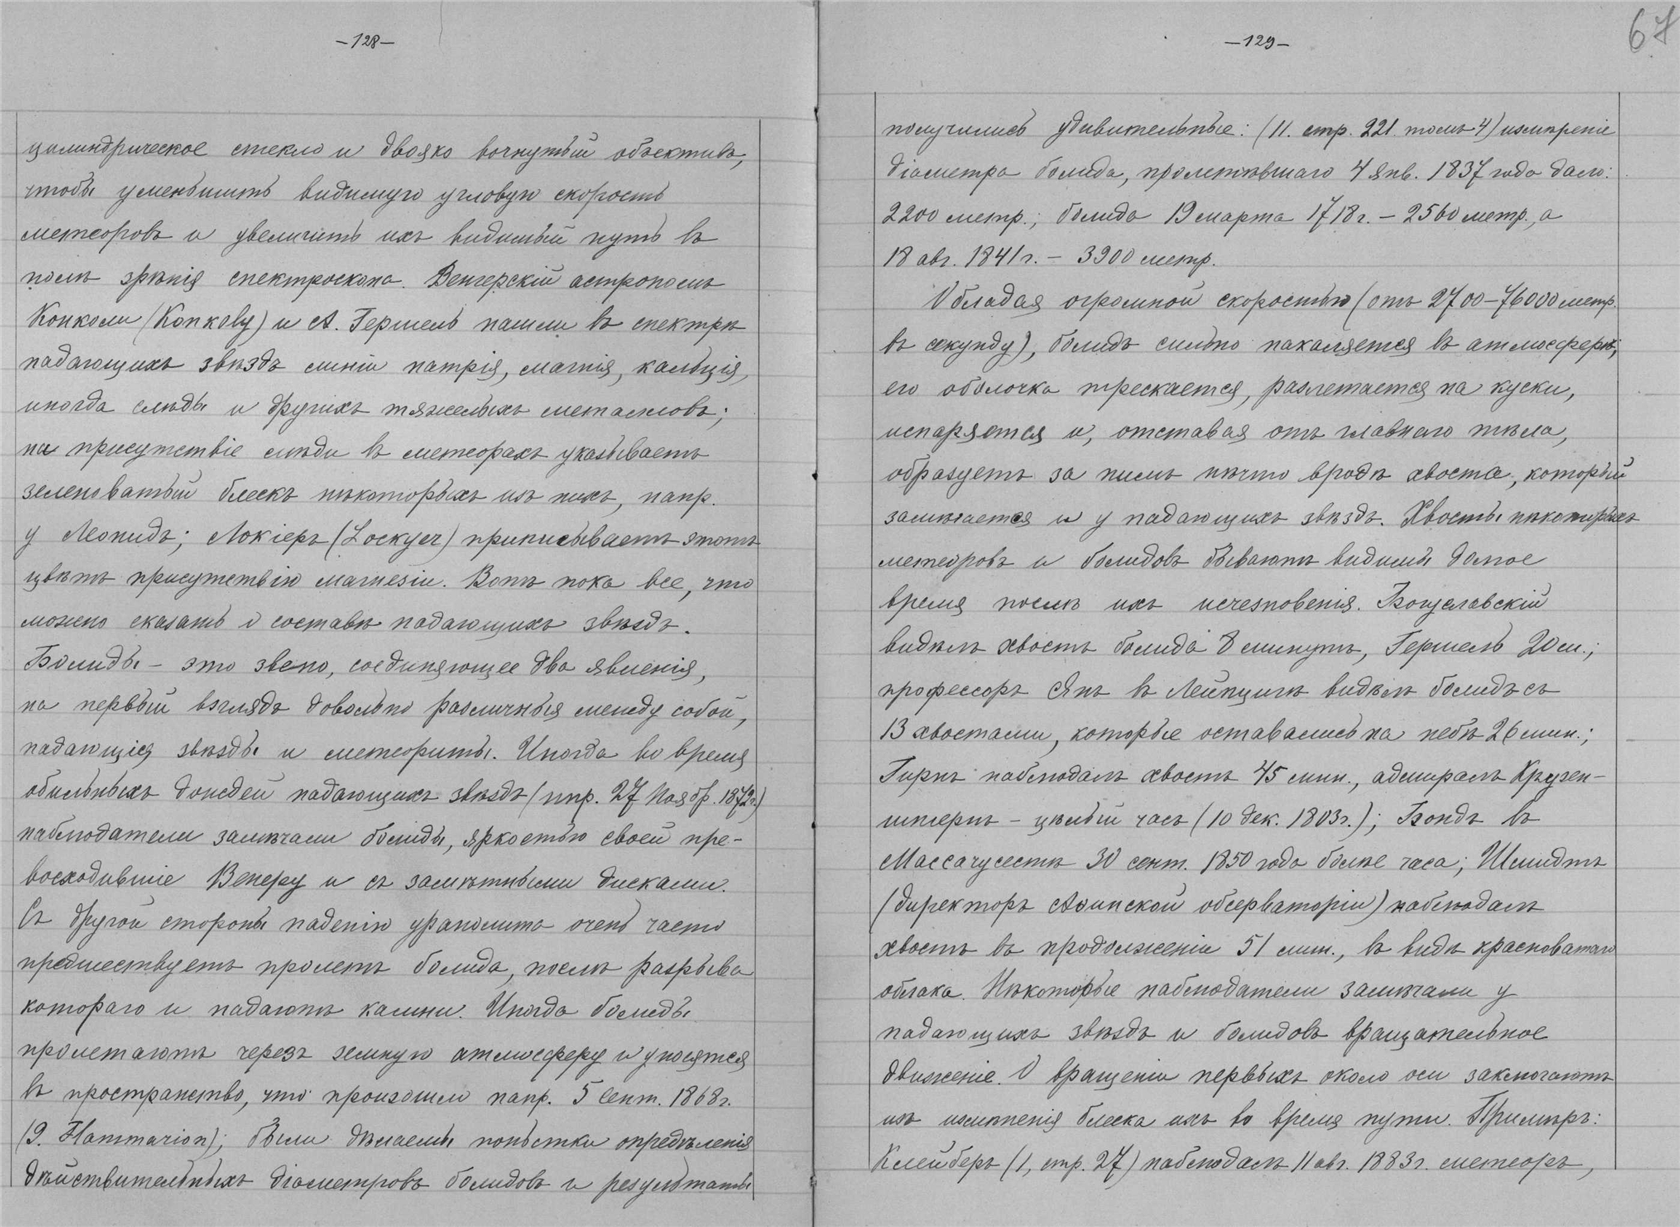 —128—
цилиндрическое стекло и двояко вогнутый объективъ,
чтобы уменьшить видимую угловую скорость
метеоровъ и увеличить ихъ видимый путь въ
полѣ зрѣнія спектроскопа. Венгерскій астрономъ
Конколи (Konkoly) и А. Гершель нашли въ спектрѣ
падающихъ звѣздъ линіи натрія, магнія, кальція,
иногда слѣды и другихъ тяжелыхъ металловъ;
на присутствіе мѣди въ метеорахъ указываетъ
зеленоватый блескъ нѣкоторыхъ изъ нихъ, напр.
у Леонидъ; Локіеръ (Lockyer) приписываетъ этотъ
цвѣтъ присутствію магнезіи. Вотъ пока все, что
можно сказать о составѣ падающихъ звѣздъ.
Болиды – это звено, соединяющее два явленія,
на первый взглядъ довольно различныя между собой,
падающія звѣзды и метеориты. Иногда во время
обильныхъ дождей падающихъ звѣздъ (нпр. 27 Ноябр. 1872 г.)
наблюдатели замѣчали болиды, яркостью своей пре-
восходившіе Венеру и съ замѣтными дисками.
Съ другой стороны паденію уранолита очень часто
предшествуетъ пролетъ болида, послѣ разрыва
котораго и падаютъ камни. Иногда болиды
пролетаютъ черезъ земную атмосферу и уносятся
въ пространство, что произошло напр. 5 Сент. 1868 г.
(9. Flammarion); были дѣлаемы попытки опредѣленія
дѣйствительныхъ діаметровъ болидовъ и результаты
—129—
67
получились удивительные: (11. стр. 221 томъ 4) измѣреніе
діаметра болида, пролетѣвшаго 4 янв. 1837 года дало:
2200 метр.; болида 19 марта 1718 г. – 2560 метр., а
18 авг. 1841 г. – 3900 метр.
Обладая огромной скоростью (отъ 2700–76000 метр.
въ секунду), болидъ сильно накаляется въ атмосферѣ;
его оболочка трескается, разлетается на куски,
испаряется и, отставая отъ главнаго тѣла,
образуетъ за нимъ нѣчто вродѣ хвоста, который
замѣчается и у падающихъ звѣздъ. Хвосты нѣкоторыхъ
метеоровъ и болидовъ бываютъ видимы долгое
время послѣ ихъ исчезновенія. Богуславскій
видѣлъ хвостъ болида 8 минутъ, Гершель 20 м.;
профессоръ Янъ въ Лейпцигѣ видѣлъ болидъ съ
13 хвостами, которые оставались на небѣ 26 мин.;
Гирнъ наблюдалъ хвостъ 45 мин., адмиралъ Крузен-
штернъ – цѣлый часъ (10 дек. 1803 г.); Бондъ въ
Массачусестѣ 30 сент. 1850 года болѣе часа; Шмидтъ
(директоръ Аѳинской обсерваторіи) наблюдалъ
хвостъ въ продолженіи 51 мин., въ видѣ красноватаго
облака. Нѣкоторые наблюдатели замѣчали у
падающихъ звѣздъ и болидовъ вращательное
движеніе. О вращеніи первыхъ около оси заключаютъ
изъ измѣненія блеска ихъ во время пути. Примѣръ:
Клейберъ (1, стр. 27) наблюдалъ 11 авг. 1883 г. метеоръ,